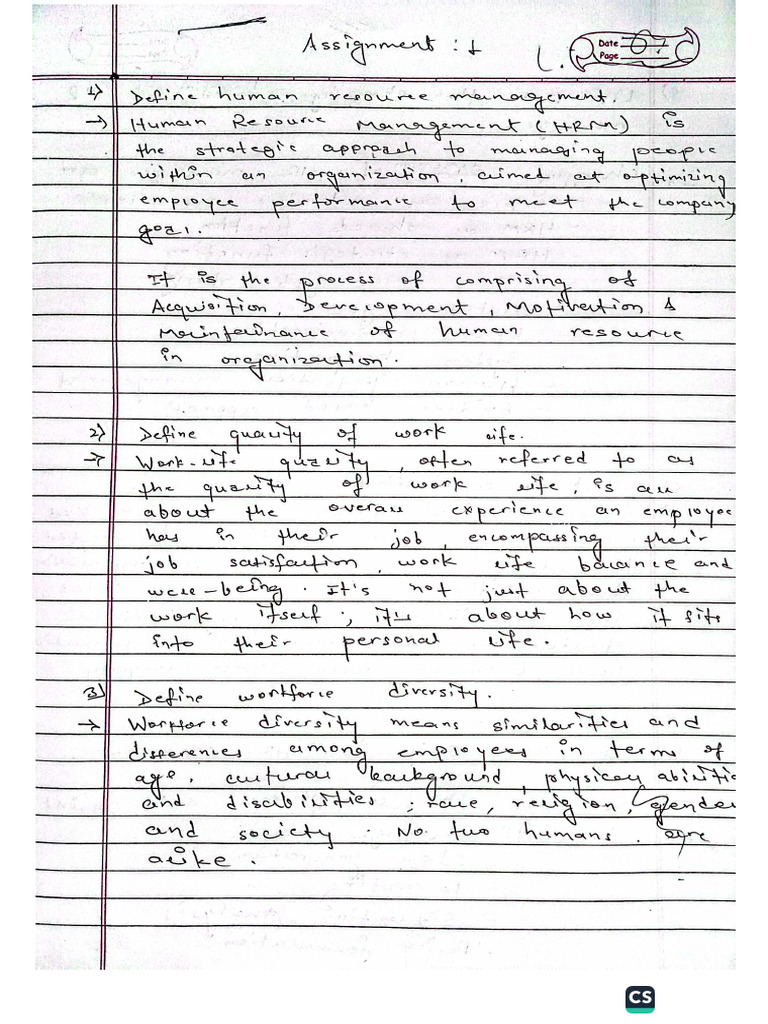 Assignment : 1
Date 07
Page
1) Define human resource management.
→ Human Resource Management (HRM) is
the strategic approach to managing people
within an organization, aimed at optimizing
employee performance to meet the company
goal.
It is the process of comprising of
Acquisition, Development, Motivation &
Maintainance of human resource
in organization.
2) Define quality of work life.
→ Work-life quality, often referred to as
the quality of work life, is all
about the overall experience an employee
has in their job, encompassing their
job satisfaction, work life balance and
well-being. It's not just about the
work itself; it's about how it fits
into their personal life.
3) Define workforce diversity.
→ Workforce diversity means similarities and
differences among employees in terms of
age, cultural background, physical abilities
and disabilities, race, religion, gender
and society. No two humans are
alike.
CS